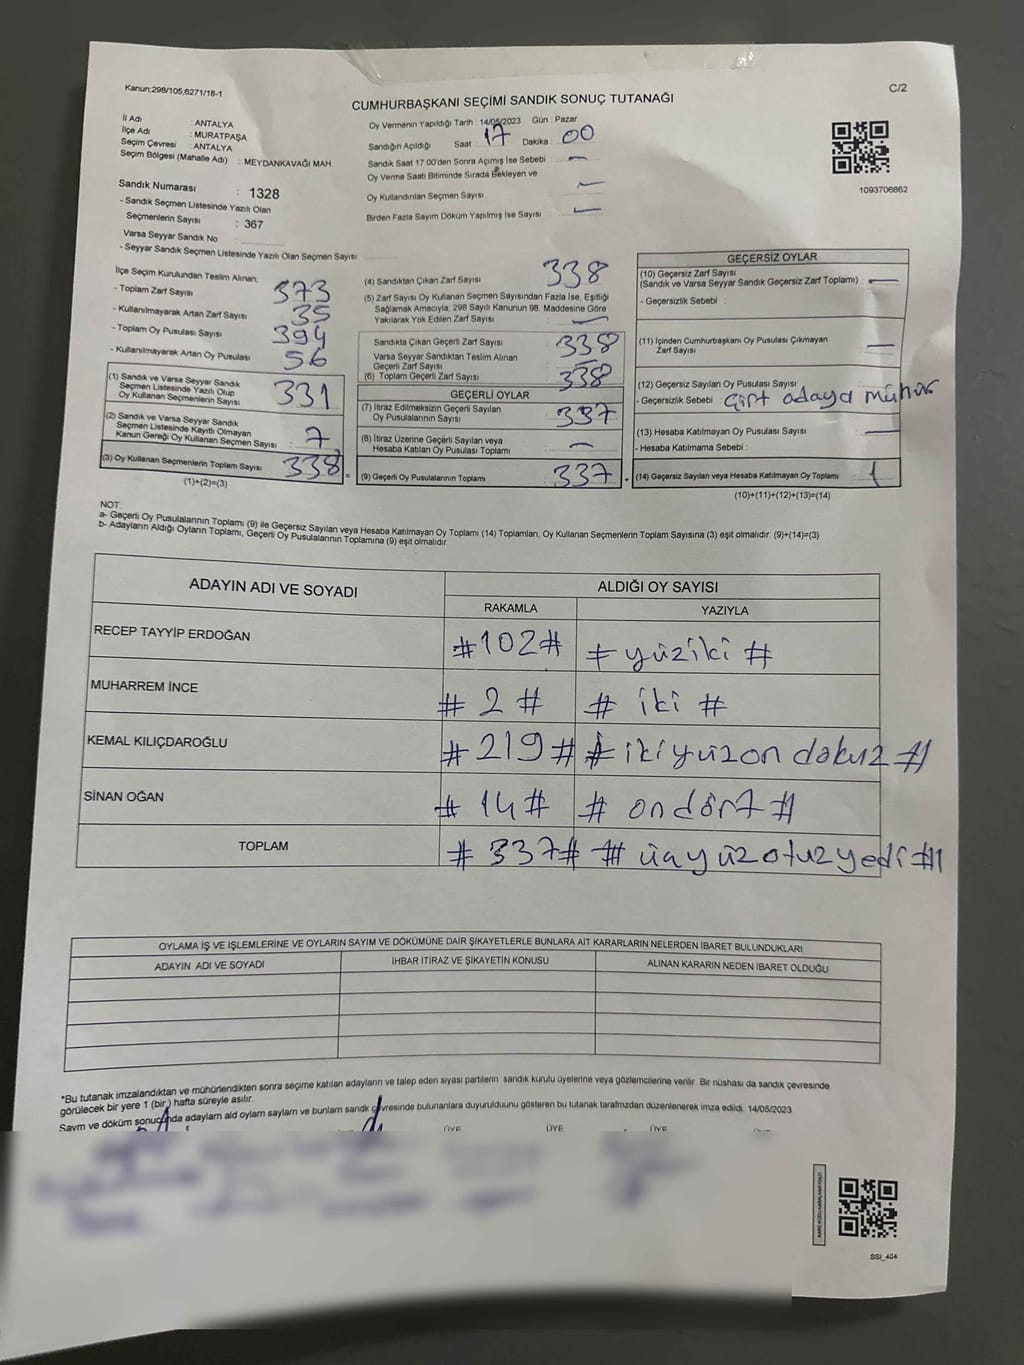 Kanun;298/105;6271/18-1
C/2
CUMHURBAŞKANI SEÇİMİ SANDIK SONUÇ TUTANAĞI
1093706862
İl Adı : ANTALYA
İlçe Adı : MURATPAŞA
Seçim Çevresi : ANTALYA
Seçim Bölgesi (Mahalle Adı) : MEYDANKAVAĞI MAH.
Sandık Numarası : 1328
- Sandık Seçmen Listesinde Yazılı Olan
Seçmenlerin Sayısı : 367
Varsa Seyyar Sandık No
- Seyyar Sandık Seçmen Listesinde Yazılı Olan Seçmen Sayısı:
Oy Vermenin Yapıldığı Tarih : 14/05/2023 Gün : Pazar
Sandığın Açıldığı Saat 17 Dakika : 00
Sandık Saat 17.00'den Sonra Açımış İse Sebebi : —
Oy Verme Saati Bitiminde Sırada Bekleyen ve
Oy Kullandırılan Seçmen Sayısı —
Birden Fazla Sayım Döküm Yapılmış İse Sayısı : —
İlçe Seçim Kurulundan Teslim Alınan;
- Toplam Zarf Sayısı : 373
- Kullanılmayarak Artan Zarf Sayısı : 35
- Toplam Oy Pusulası Sayısı : 394
- Kullanılmayarak Artan Oy Pusulası : 56
(1) Sandık ve Varsa Seyyar Sandık
Seçmen Listesinde Yazılı Olup
Oy Kullanan Seçmenlerin Sayısı : 331
(2) Sandık ve Varsa Seyyar Sandık
Seçmen Listesinde Kayıtlı Olmayan
Kanun Gereği Oy Kullanan Seçmen Sayısı : 7
(3) Oy Kullanan Seçmenlerin Toplam Sayısı : 338
(1)+(2)=(3)
(4) Sandıktan Çıkan Zarf Sayısı 338
(5) Zarf Sayısı Oy Kullanan Seçmen Sayısından Fazla İse, Eşitliği
Sağlamak Amacıyla, 298 Sayılı Kanunun 98. Maddesine Göre
Yakılarak Yok Edilen Zarf Sayısı : —
Sandıkta Çıkan Geçerli Zarf Sayısı : 338
Varsa Seyyar Sandıktan Teslim Alınan
Geçerli Zarf Sayısı : —
(6) Toplam Geçerli Zarf Sayısı : 338
GEÇERLİ OYLAR
(7) İtiraz Edilmeksizin Geçerli Sayılan
Oy Pusulalarının Sayısı : 337
(8) İtiraz Üzerine Geçerli Sayılan veya
Hesaba Katılan Oy Pusulası Toplamı : —
= (9) Geçerli Oy Pusulalarının Toplamı : 337 +
GEÇERSİZ OYLAR
(10) Geçersiz Zarf Sayısı
(Sandık ve Varsa Seyyar Sandık Geçersiz Zarf Toplamı) : —
- Geçersizlik Sebebi :
(11) İçinden Cumhurbaşkanı Oy Pusulası Çıkmayan
Zarf Sayısı : —
(12) Geçersiz Sayılan Oy Pusulası Sayısı :
- Geçersizlik Sebebi : Çift adaya mühür
(13) Hesaba Katılmayan Oy Pusulası Sayısı : —
- Hesaba Katılmama Sebebi :
(14) Geçersiz Sayılan veya Hesaba Katılmayan Oy Toplamı : 1
(10)+(11)+(12)+(13)=(14)
NOT:
a- Geçerli Oy Pusulalarının Toplamı (9) ile Geçersiz Sayılan veya Hesaba Katılmayan Oy Toplamı (14) Toplamları, Oy Kullanan Seçmenlerin Toplam Sayısına (3) eşit olmalıdır. (9)+(14)=(3)
b- Adayların Aldığı Oyların Toplamı, Geçerli Oy Pusulalarının Toplamına (9) eşit olmalıdır.
ADAYIN ADI VE SOYADI ALDIĞI OY SAYISI
RAKAMLA YAZIYLA
RECEP TAYYİP ERDOĞAN #102# # yüziki #
MUHARREM İNCE # 2 # # iki #
KEMAL KILIÇDAROĞLU #219# # ikiyüzon dokuz #
SİNAN OĞAN # 14# # ondört #
TOPLAM # 337# # üçyüzotuzyedi #
OYLAMA İŞ VE İŞLEMLERİNE VE OYLARIN SAYIM VE DÖKÜMÜNE DAİR ŞİKAYETLERLE BUNLARA AİT KARARLARIN NELERDEN İBARET BULUNDUKLARI
ADAYIN ADI VE SOYADI İHBAR İTİRAZ VE ŞİKAYETİN KONUSU ALINAN KARARIN NEDEN İBARET OLDUĞU
*Bu tutanak imzalandıktan ve mühürlendikten sonra seçime katılan adayların ve talep eden siyasi partilerin sandık kurulu üyelerine veya gözlemcilerine verilir. Bir nüshası da sandık çevresinde
görülecek bir yere 1 (bir) hafta süreyle asılır.
Sayım ve döküm sonucunda adayların ald oyların sayları ve bunların sandk çevresinde bulunanlara duyurulduunu gösteren bu tutanak tarafmzdan düzenlenerek imza edildi. 14/05/2023
ÜYE ÜYE ÜYE
SSI_404